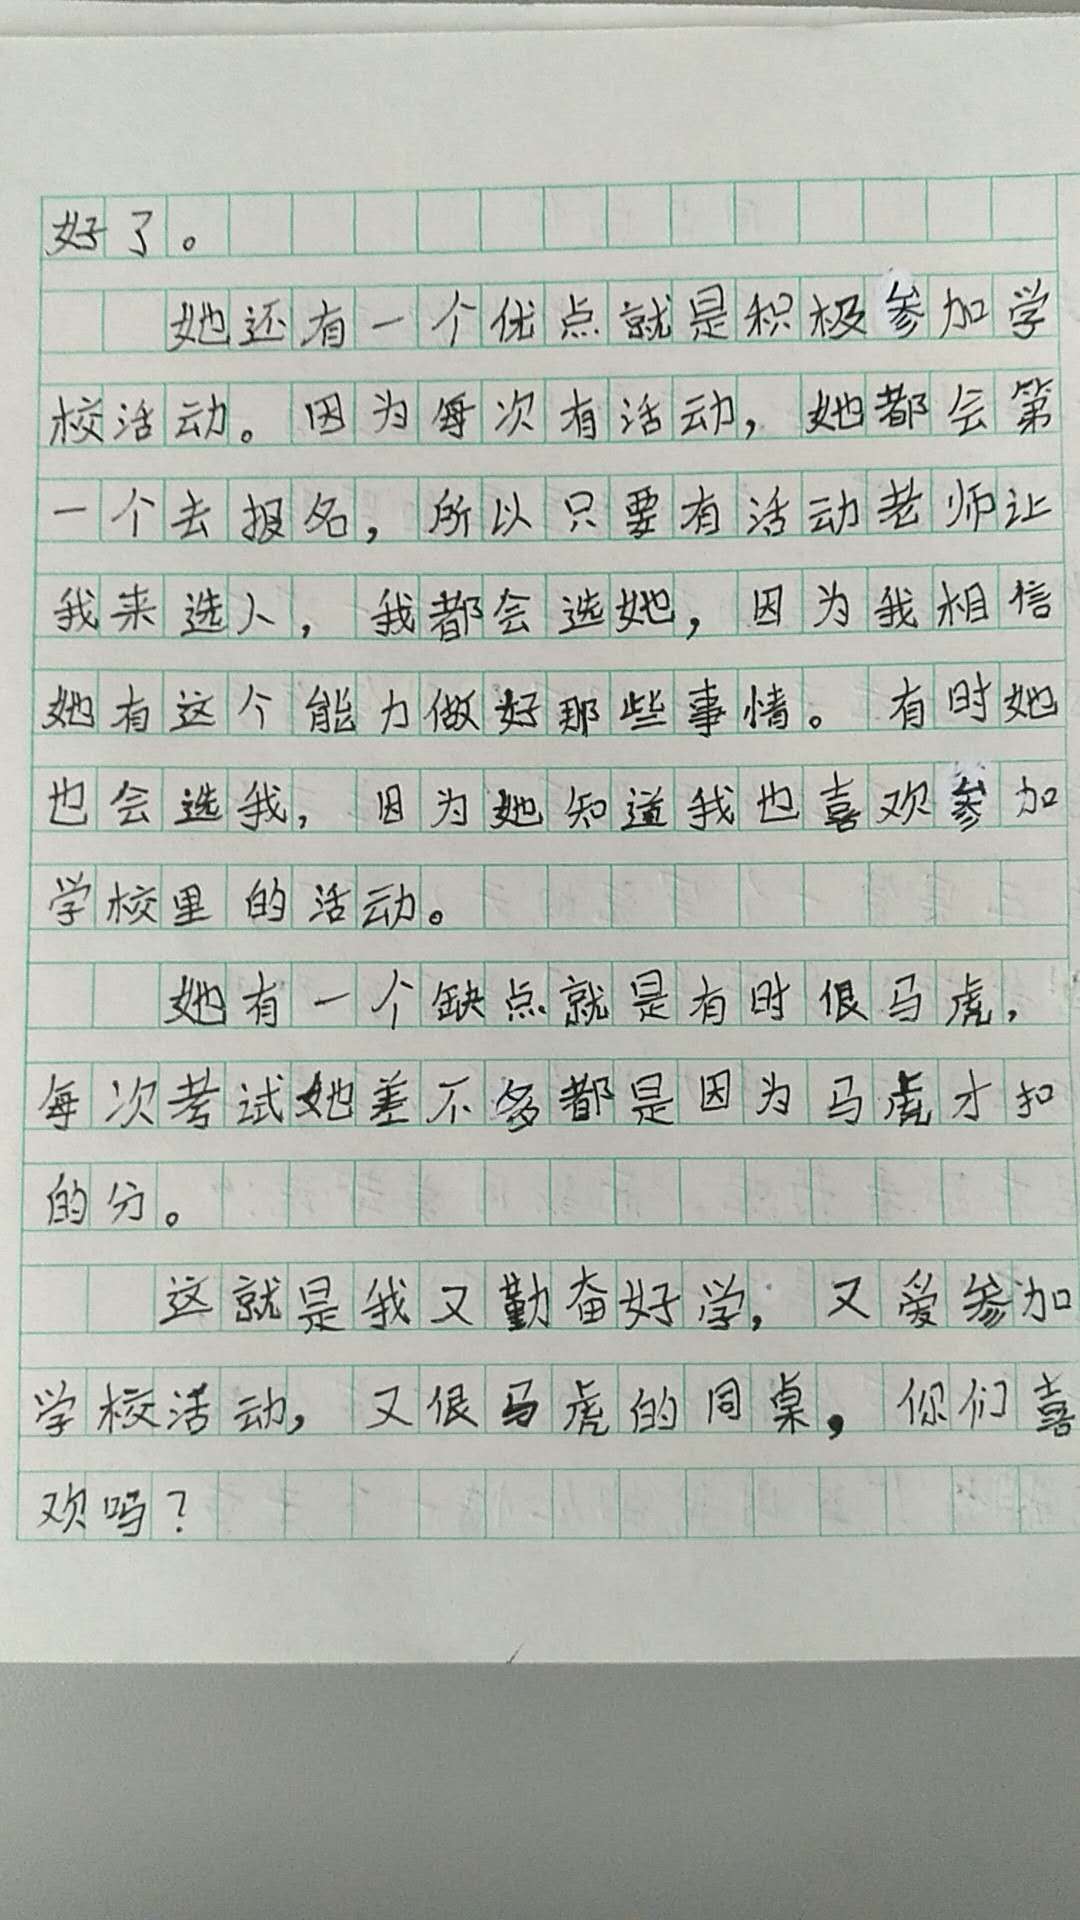 好了。
她还有一个优点就是积极参加学
校活动。因为每次有活动，她都会第
一个去报名，所以只要有活动老师让
我来选人，我都会选她，因为我相信
她有这个能力做好那些事情。有时她
也会选我，因为她知道我也喜欢参加
学校里的活动。
她有一个缺点就是有时很马虎，
每次考试她差不多都是因为马虎才扣
的分。
这就是我又勤奋好学，又爱参加
学校活动，又很马虎的同桌，你们喜
欢吗？